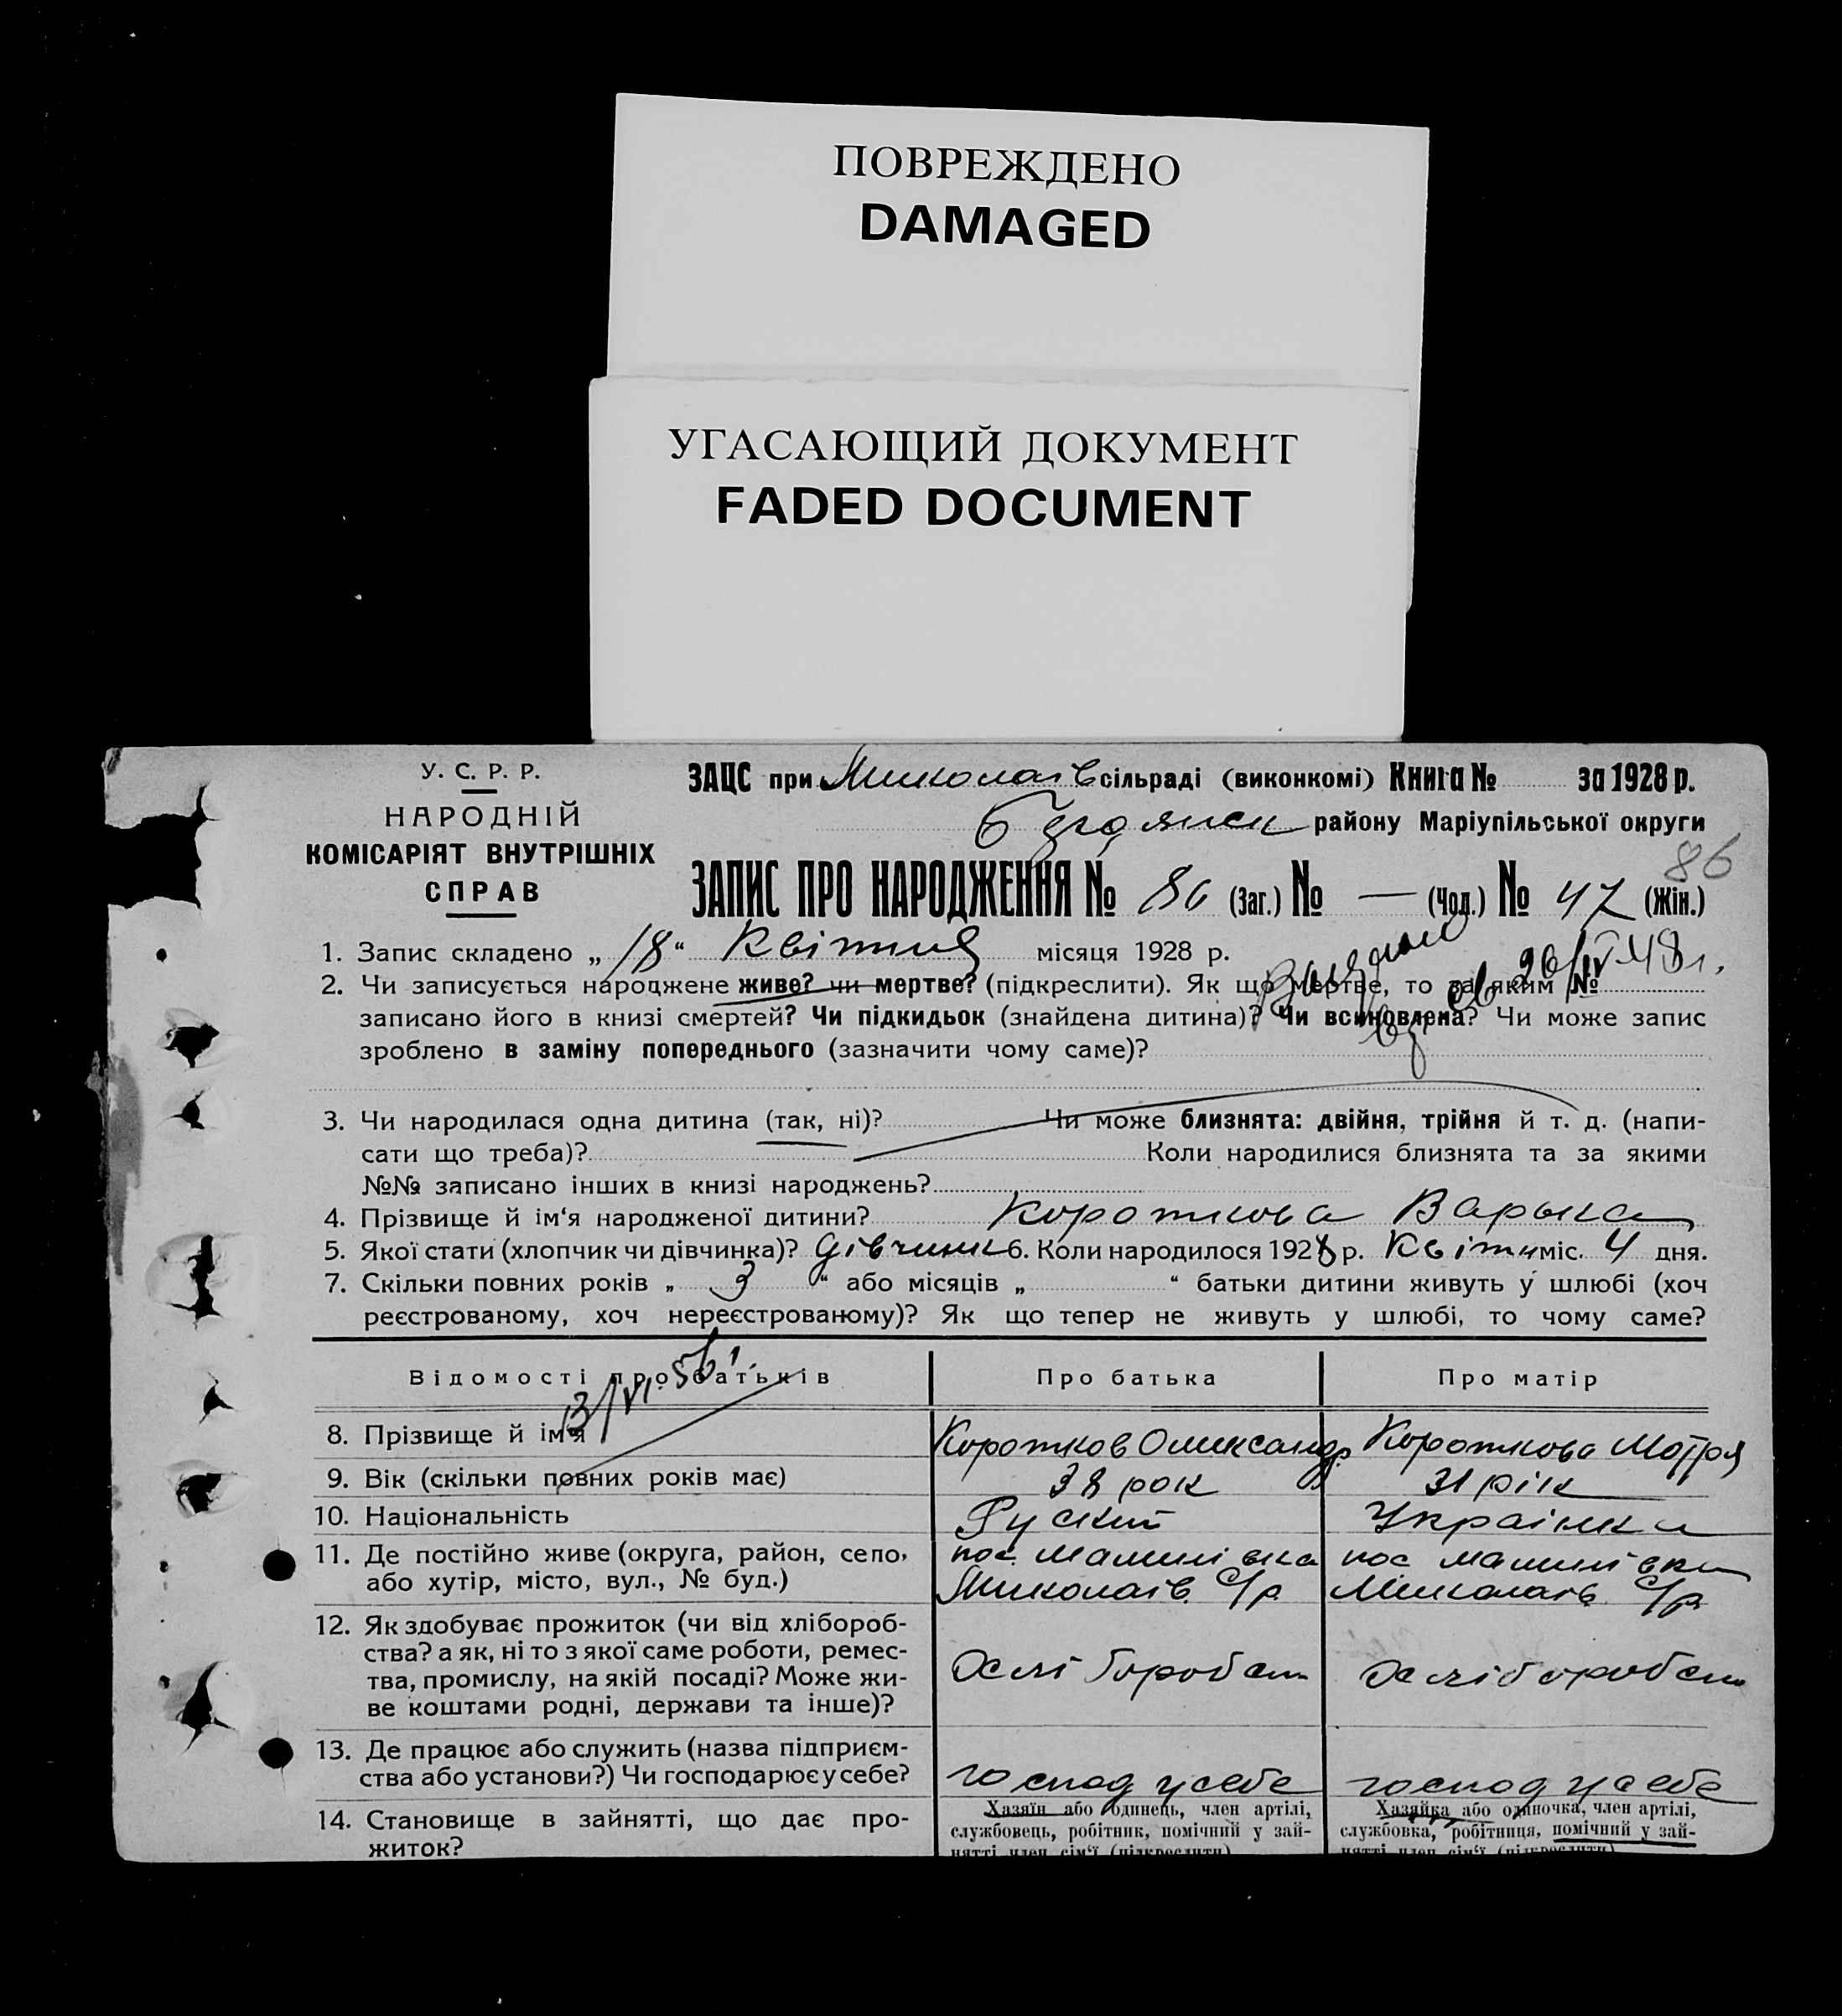 ПОВРЕЖДЕНО
DAMAGED
УГАСАЮЩИЙ ДОКУМЕНТ
FADED DOCUMENT
У. С. Р. Р.
НАРОДНІЙ
КОМІСАРІЯТ ВНУТРІШНІХ
СПРАВ
ЗАЦС при Миколаїв сільраді (виконкомі) Книга № за 1928 р.
району Маріупільської округи
86
ЗАПИС ПРО НАРОДЖЕННЯ № 86 (Заг.) № — (Чол.) № 47 (Жін.)
1. Запис складено „18“ Квітня місяця 1928 р.
2. Чи записується народжене живе? чи мертве? (підкреслити). Як що мертве, то за яким №
записано його в книзі смертей? Чи підкидьок (знайдена дитина)? Чи всиновлена? Чи може запис
зроблено в заміну попереднього (зазначити чому саме)?
3. Чи народилася одна дитина (так, ні)? Чи може близнята: двійня, трійня й т. д. (напи-
сати що треба)? Коли народилися близнята та за якими
№№ записано інших в книзі народжень?
4. Прізвище й ім‘я народженої дитини? Короткова Варька
5. Якої стати (хлопчик чи дівчинка)? дівчинк 6. Коли народилося 1928 р. Квітн міс. 4 дня.
7. Скільки повних років „ 3 “ або місяців „ “ батьки дитини живуть у шлюбі (хоч
реєстрованому, хоч нереєстрованому)? Як що тепер не живуть у шлюбі, то чому саме?
Відомості про батьків Про батька Про матір
13/VI 56
8. Прізвище й ім‘я Коротков Олександр Короткова Мотря
9. Вік (скільки повних років має) 38 рок 31 рік
10. Національність Руский Українка
11. Де постійно живе (округа, район, село, пос. Малинівка пос Малинівка
або хутір, місто, вул., № буд.) Миколаїв с/р Миколаїв с/р
12. Як здобуває прожиток (чи від хлібороб-
ства? а як, ні то з якої саме роботи, ремес-
тва, промислу, на якій посаді? Може жи-
ве коштами родні, держави та інше)?
13. Де працює або служить (назва підприєм-
ства або установи?) Чи господарює у себе? господ у себе господ у себе
14. Становище в зайнятті, що дає про-
житок?
Хазяїн або одинець, член артілі,
службовець, робітник, помічний у зай-
нятті член сім‘ї (підкреслити)
Хазяйка або одиночка, член артілі,
службовка, робітниця, помічний у зай-
нятті член сім‘ї (підкреслити)